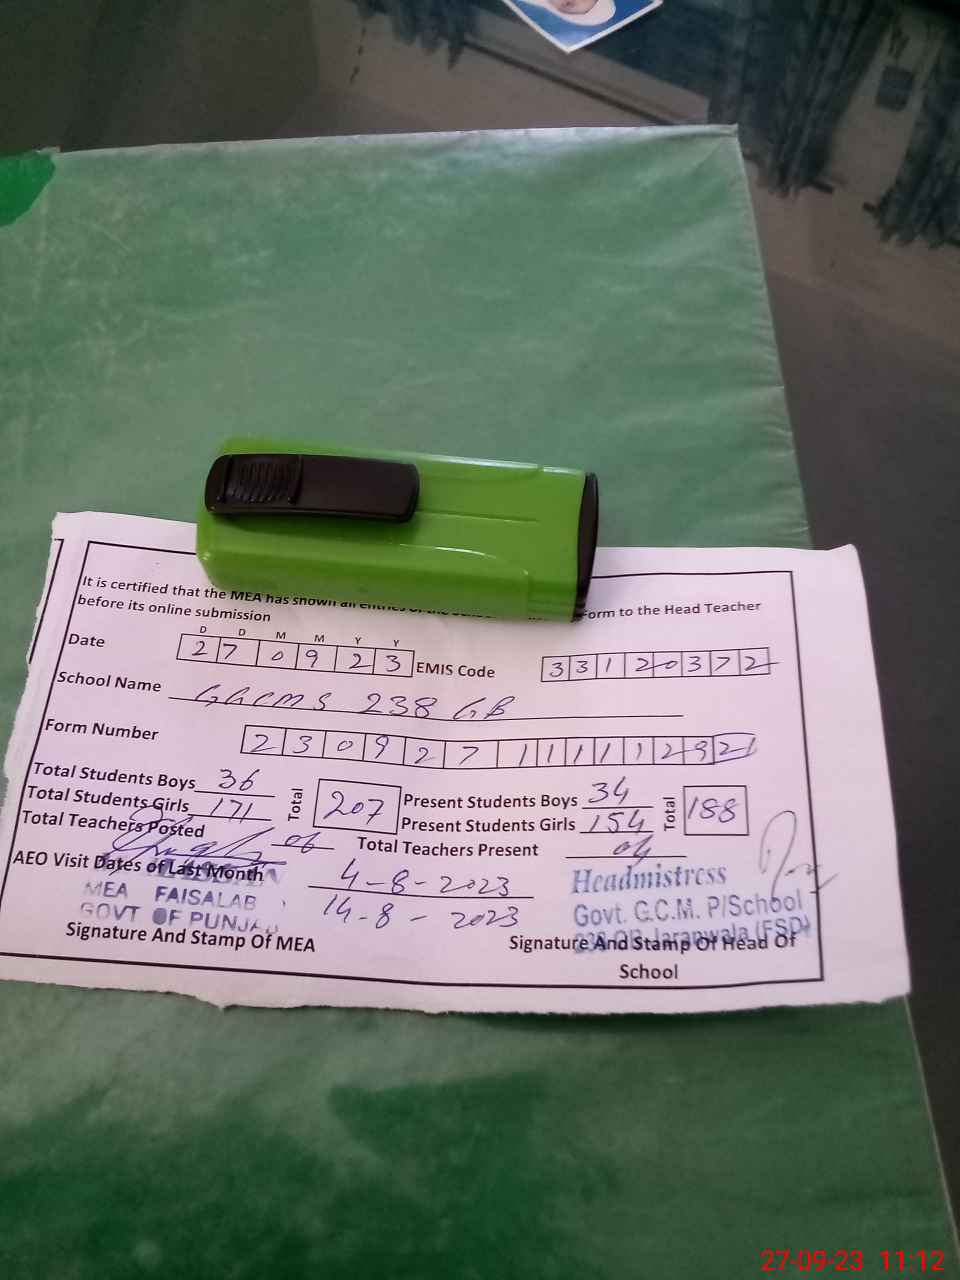 It is certified that the MEA has shown all entries of the form to the Head Teacher
before its online submission
D D M M Y Y
Date 27 09 23 EMIS Code 33120372
School Name GGCMS 238 GB
Form Number 230927 1111
Total Students Boys 36 Total 207 Present Students Boys 34 Total 188
Total Students Girls 171 Present Students Girls 154
Total Teachers Posted 06 Total Teachers Present 04
AEO Visit Dates of Last Month 4-8-2023
14-8-2023
MEA FAISALAB
GOVT OF PUNJA
Signature And Stamp Of MEA
Headmistress
Govt. G.C.M. P/School
Jaranwala (FSD)
Signature And Stamp Of Head Of
School
27-09-23 11:12